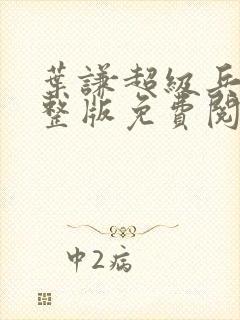 葉謙超級兵
整版免費閱
中2病